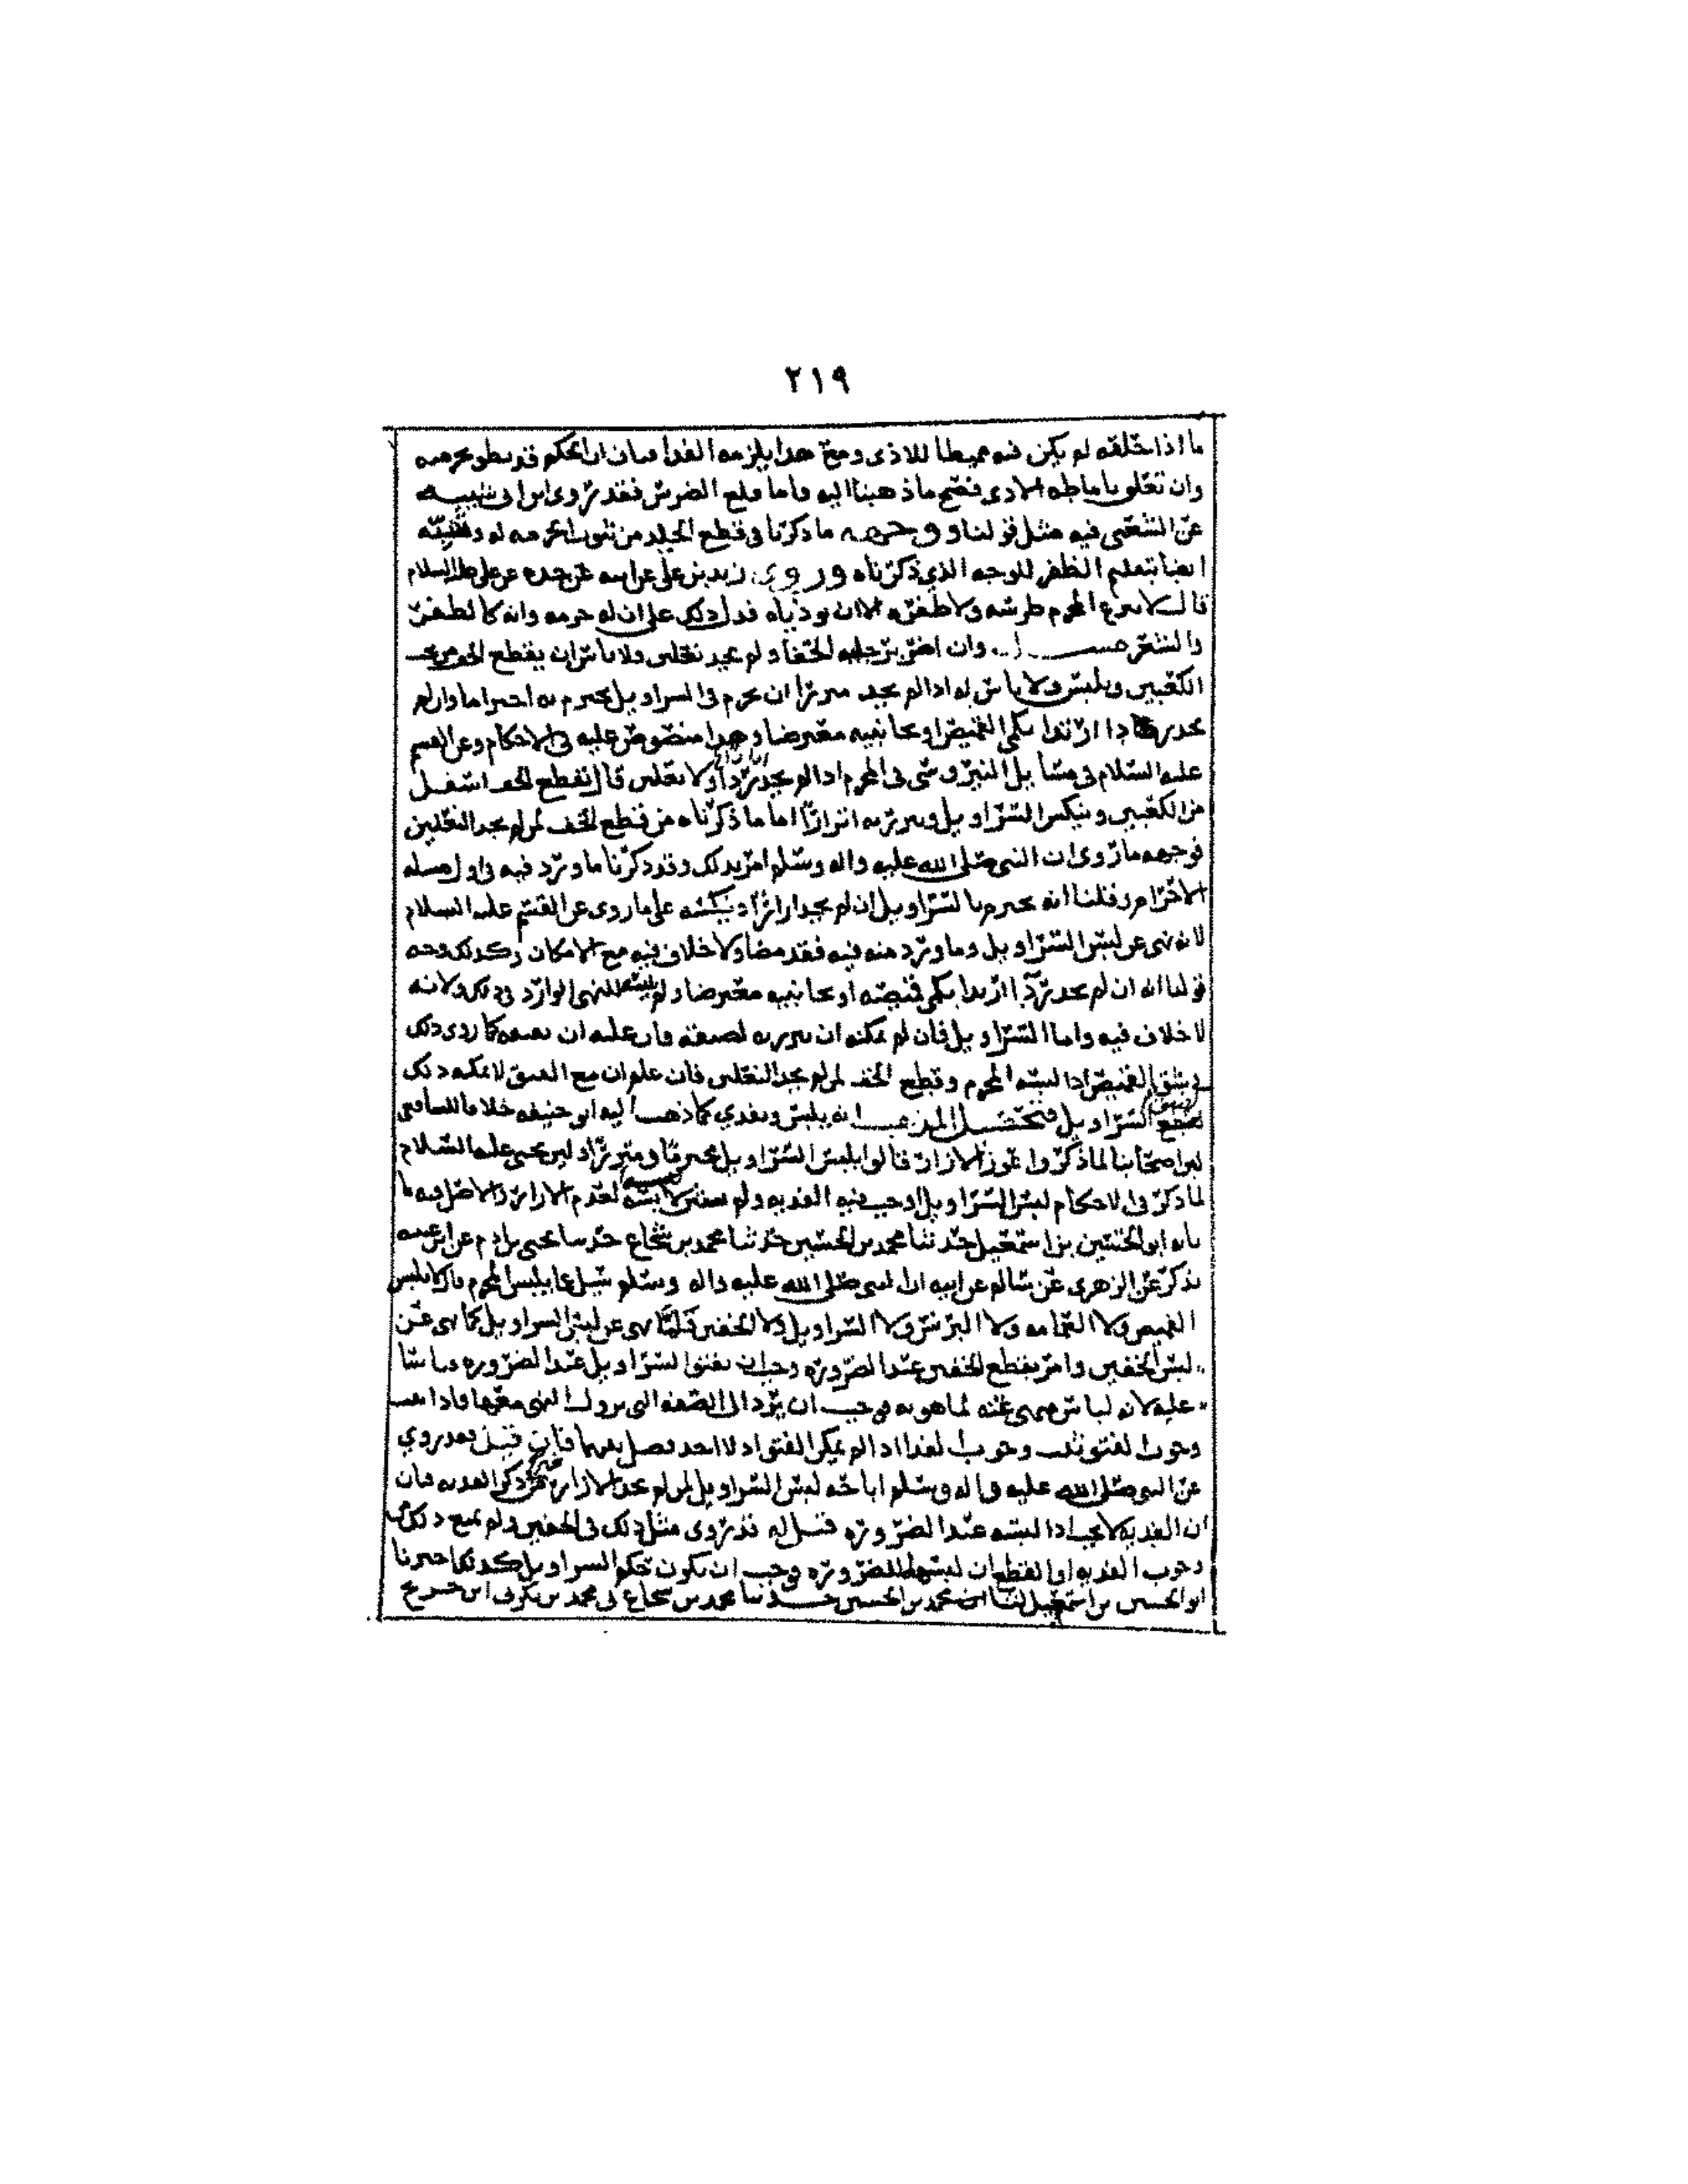 ٢١٩
ما اذا حلقه لم يكن فيه مميطا للاذى ومع هذا يلزمه الفدا فبان ان الحكم قد
وان تعلق باماطه الاذى فصح ما ذهبنا اليه واما قلع الضرس فقد روى ابن ابى شيبه
عن الشعبى فيه مثل قولنا ووجهه ما ذكرنا فى قطع الجلد من ثبوت الحرمه له
ايضا بتقليم الظفر للوجه الذي ذكرناه وروى زيد بن على عن ابيه عن جده عن على عليه السلام
قال لا ينزع المحرم ضرسه ولا ظفره الا ان يوذياه فدل ذلك على ان له حرمه وانه كالظفر
والشعر وان لم يجد نعلين فلا باس ان يقطع الخف من تحت
الكعبين ويلبس ولا باس له اذا لم يجد ميزرا ان يحرم فى السراويل يحتزم به احتزاما وان لم
يجد ردا ارتدا بكمى القميص او بجانبيه معترضا وهذا منصوص عليه فى الاحكام وعن القسم
عليه السلام فى مسايل النيروسى فى المحرم اذا لم يجد ولا نعلين قال يقطع الخف اسفل
من الكعبين وينكس السراويل ويتزر به اتزارا اما ما ذكرناه من قطع الخف لمن لم يجد النعلين
فوجهه ما روى ان النبى صلى الله عليه واله وسلم امر بذلك وقد ذكرنا ما ورد فيه فى اول مسله
الاحرام وقلنا انه يحتزم بالسراويل ان لم يجد ازارا او ينكسه على ما روى عن القسم عليه السلام
لانه نهى عن لبس السراويل وما ورد منه فيه فقد مضا ولا خلاف فيه مع الامكان وكذلك وجه
قولنا انه ان لم يجد ردآ ارتدا بكمى قميصه او بجانبيه معترضا ولم يلبسه للنهى الوارد فى ذلك ولانه
لا خلاف فيه واما السراويل فان لم يمكنه ان يتزر به لضيقه فان عليه ان يفتقه كما روى ذلك
فى شق القميص اذا لبسه المحرم وقطع الخف لمن لم يجد النعلين فان علم ان مع الفتق لا يمكنه ذلك
السراويل فتحصيل المذهب انه يلبس ويفدي كما ذهب اليه ابو حنيفه خلافا للشافعى
لان اصحابنا لما ذكروا عوز الازار قالوا يلبس السراويل محترما ومتزرا وليحيى عليه السلام
لما ذكر فى الاحكام لبس السراويل اوجب فيه الفديه ولم يعتبر لعدم الازار والاصل فيه ما
ابو الحسين بن اسمعيل حدثنا محمد بن الحسين حدثنا محمد بن شجاع حدثنا يحيى بن ادم عن ابن عيينه
يذكر عن الزهرى عن سالم عن ابيه ان النبى صلى الله عليه واله وسلم سيل عما يلبس المحرم قال لا يلبس
القميص ولا العمامه ولا البرنس ولا السراويل ولا الخفين فلما نهى عن لبس السراويل كما نهى عن
لبس الخفين وامر بقطع الخفين عند الضروره وجب ان يفتق السراويل عند الضروره قياسا
عليه لانه لباس منهى عنه لما هو به فوجب ان يرد الى الصفه التى يزول النهى معها فاذا ثبت
وجوب الفتق ثبت وجوب الفدا اذا لم يمكن الفتق اذ لا احد فصل بينهما فان قيل فقد روي
عن النبى صلى الله عليه واله وسلم اباحه لبس السراويل لمن لم يجد الازار من غير ذكر الفديه فبان
ان الفديه لا تجب اذا لبسه عند الضروره قيل له قد روى مثل ذلك فى الخفين ولم يمنع ذلك من
وجوب الفديه او القطع ان لبسهما للضروره فوجب ان يكون حكم السراويل كذلك اخبرنا
ابو الحسين بن اسمعيل محمد بن الحسين حدثنا محمد بن شجاع محمد بن بكر عن ابن جريج